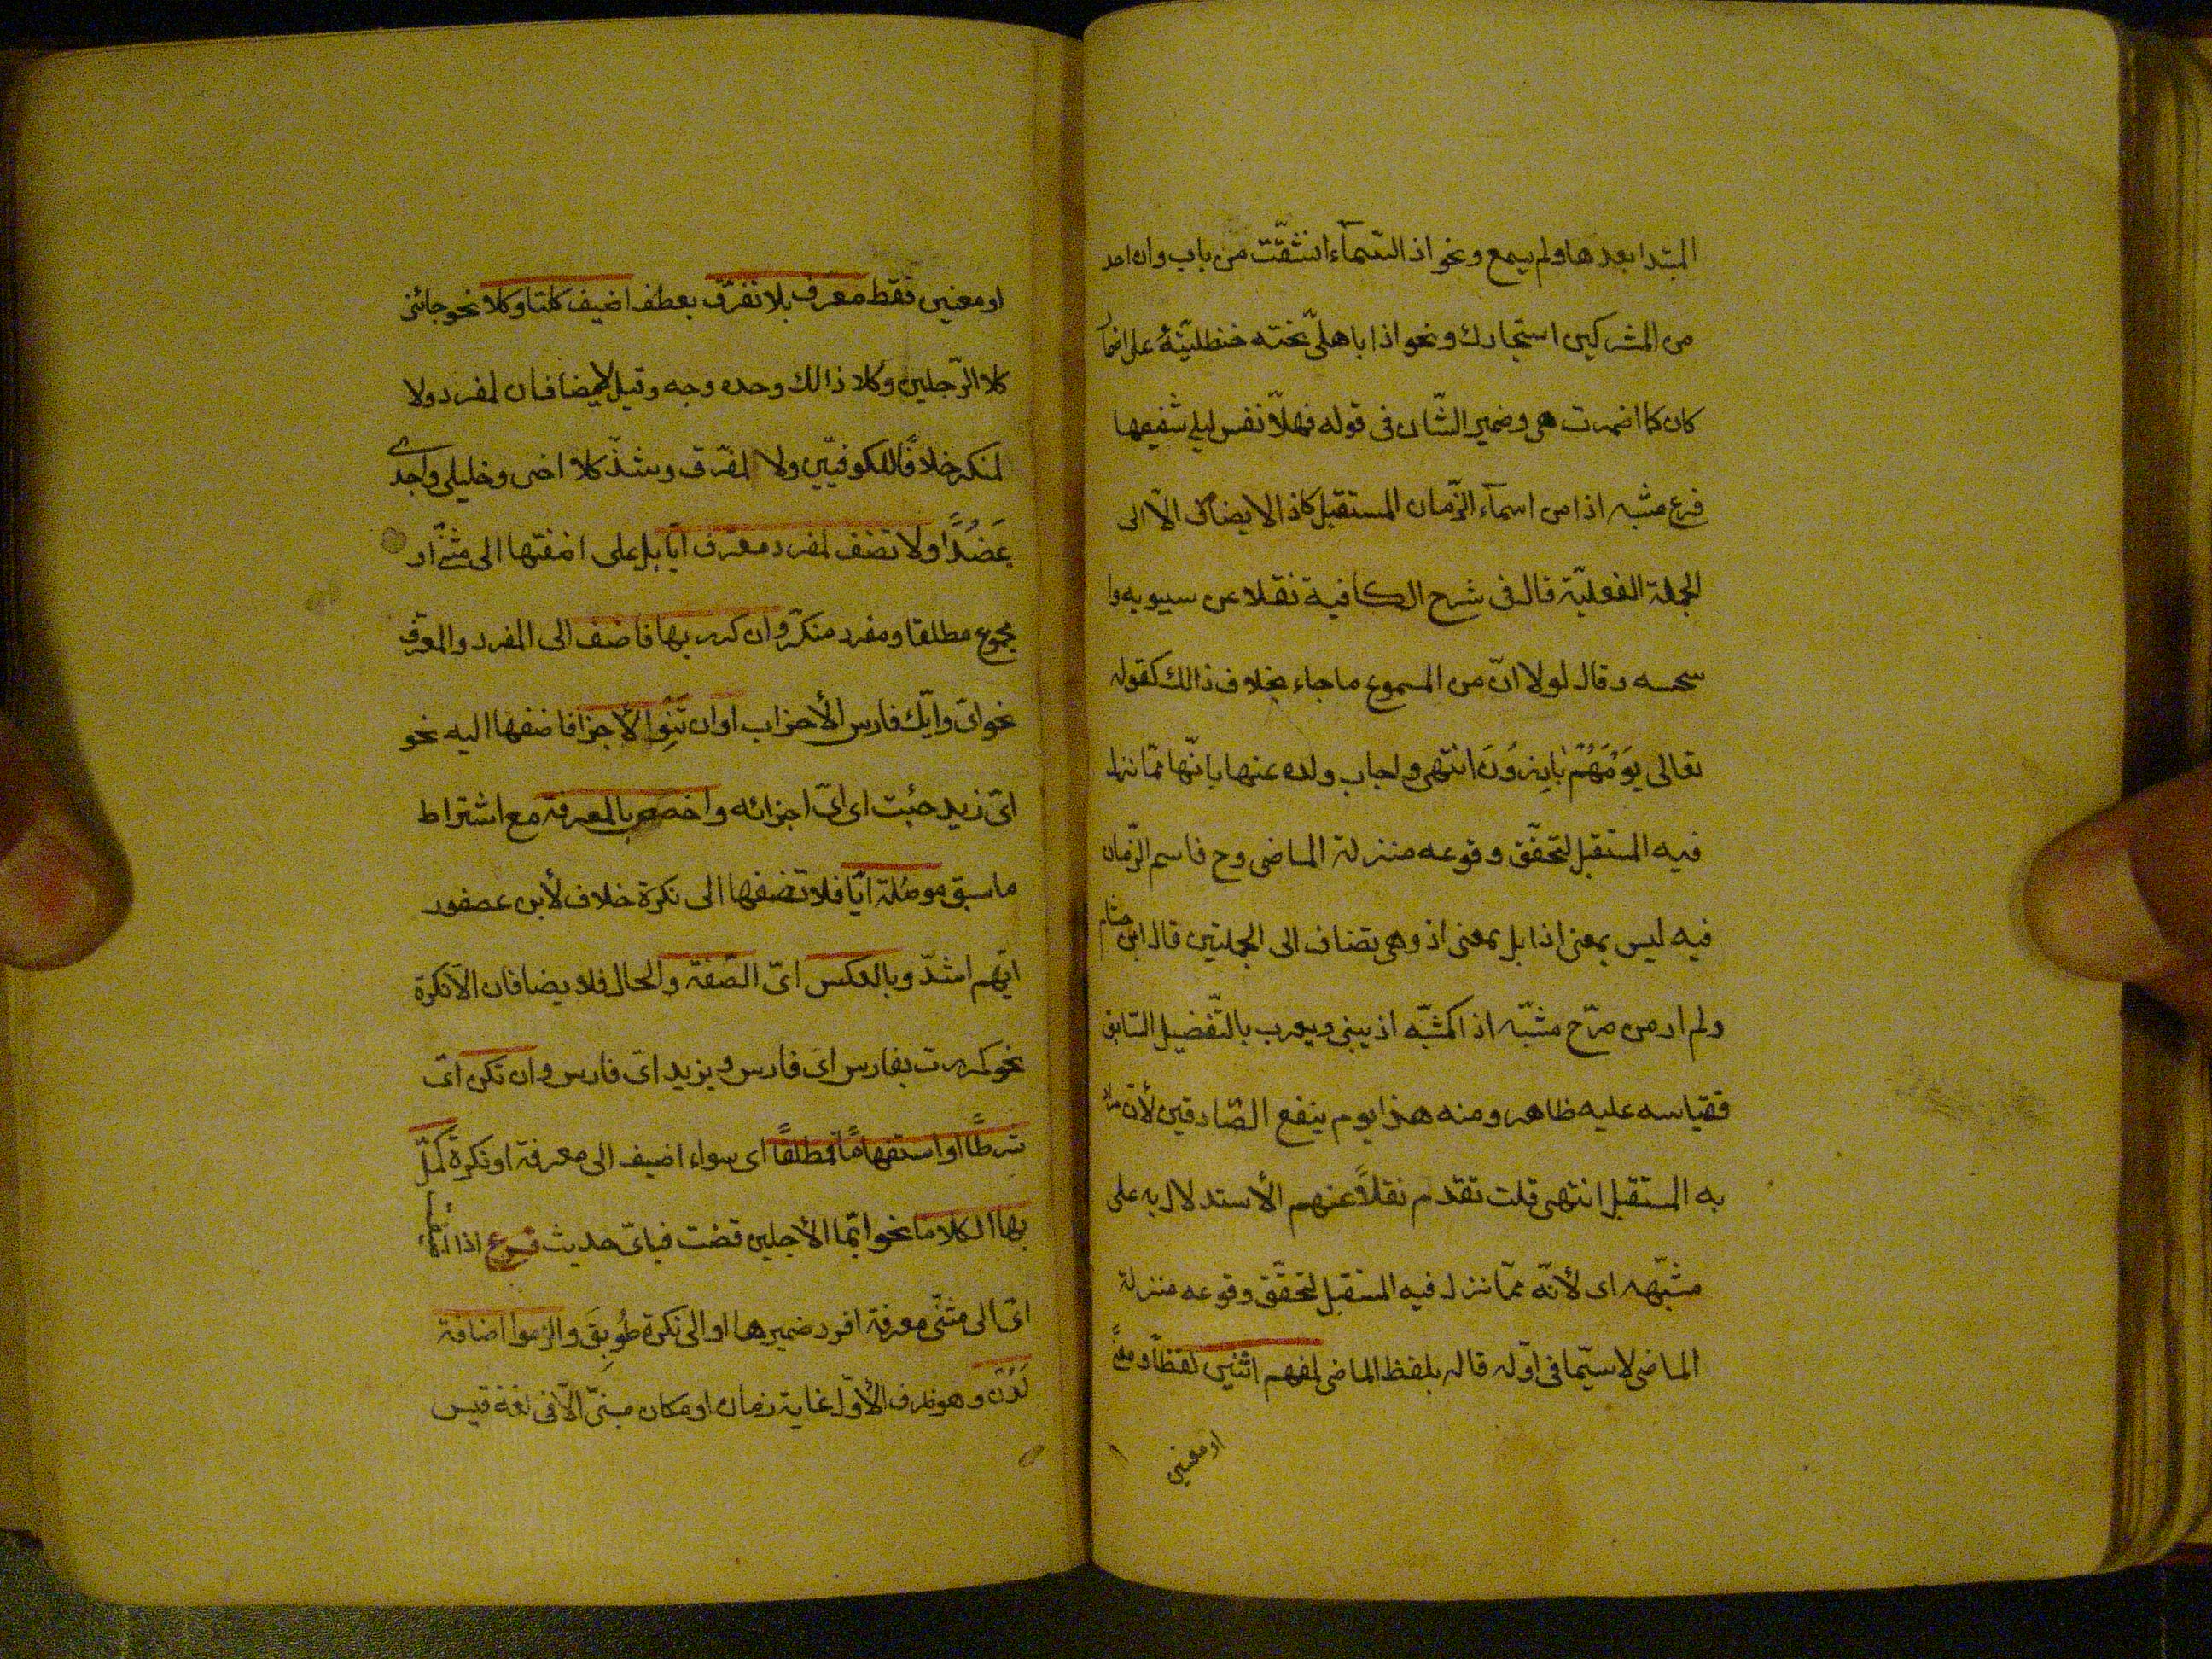 المبتدا بعدها ولم يسمع ونحو اذ السّمآء انشقّت من باب وان احد
من المشركين استجارك ونحو اذا باهليّ تحته حنظليّة على اضمار
كان كما اضمرت هى وضمير الشّان فى قوله فهلّا نفس ليلى شفيعها
فرع مشبه اذا من اسمآء الزّمان المستقبل كاذا لا يضاف الّا الى
الجملة الفعليّة قال فى شرح الكافية نقلا عن سيبويه وا
ستحسنه وقال لولا انّ من المسموع ما جاء بخلاف ذالك كقوله
تعالى يَوْمَهُمْ بٰارِزُونَ انتهى واجاب ولده عنها بانّها ممّا نزل
فيه المستقبل لتحقّق وقوعه منزلة الماضى وح فاسم الزّمان
فيه ليس بمعنى اذا بل بمعنى اذ وهى تضاف الى الجملتين قال ابن هشام
ولم ار من صرّح مشبّه اذا كمشبّه اذ يبنى ويعرب بالتّفضيل السّابق
فقياسه عليه ظاهر ومنه هذا يوم ينفع الصّادقين لأنّ مراد
به المستقبل انتهى قلت تقدم نقلًا عنهم الأستدلال به على
مشبّهه اى لأنّه ممّا نزل فيه المستقبل لتحقّق وقوعه منزلة
الماضى لا سيّما فى اوّله قاله بلفظ الماضى لمفهم اثنين لفظًا ومعنًى
او معنيين
او معنيين فقط معرف بلا تفرّق بعطف اضيف كلتا وكلا نحو جائنى
كلا الرّجلين وكلا ذالك وحده وجه وقيل لا يضافان لمفرد ولا
لمنكر خلافًا للكوفيّين ولا لمفرّق وشذّ كلا اخى وخليلى واجدى
عَضُدًا ولا تضف لمفرد معرّف ايّا بل على اضفتها الى مثنّى او
مجموع مطلقا ومفرد منكر وان كررتها فاضف الى المفرد والمعرّف
نحو ايّى وايّك فارس الأحزاب او ان تَنْوِ الأجزا فاضفها اليه نحو
اىّ زيد حبّت اى اىّ اجزائه واخصص بالمعرفة مع اشتراط
ما سبق موصُلة ايّا فلا تضفها الى نكرة خلاف لأبن عصفور
ايّهم اشدّ وبالعكس اىّ الصّفة والحال فلا يضافان الّا نكرة
نحو كمررت بفارس اىّ فارس وبزيد اىّ فارس وان تكن اىّ
شرطًا او استفهامًا فمطلقًا اى سواء اضيف الى معرفة او نكرة كمّل
بها الكلاما نحو ايّما الأجلين قضت فباىّ حديث فرع اذا اضيف
اىّ الى مثنّى معرفة افرد ضميرها او الى نكرة طُوبِقَ والزموا اضافة
لَدُنْ وهو ظرف لأوّل غاية زمان او مكان مبنىّ الّا فى لغة قيس